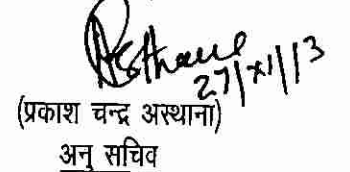 27/XI/13
(प्रकाश चन्द्र अस्थाना)
अनु सचिव